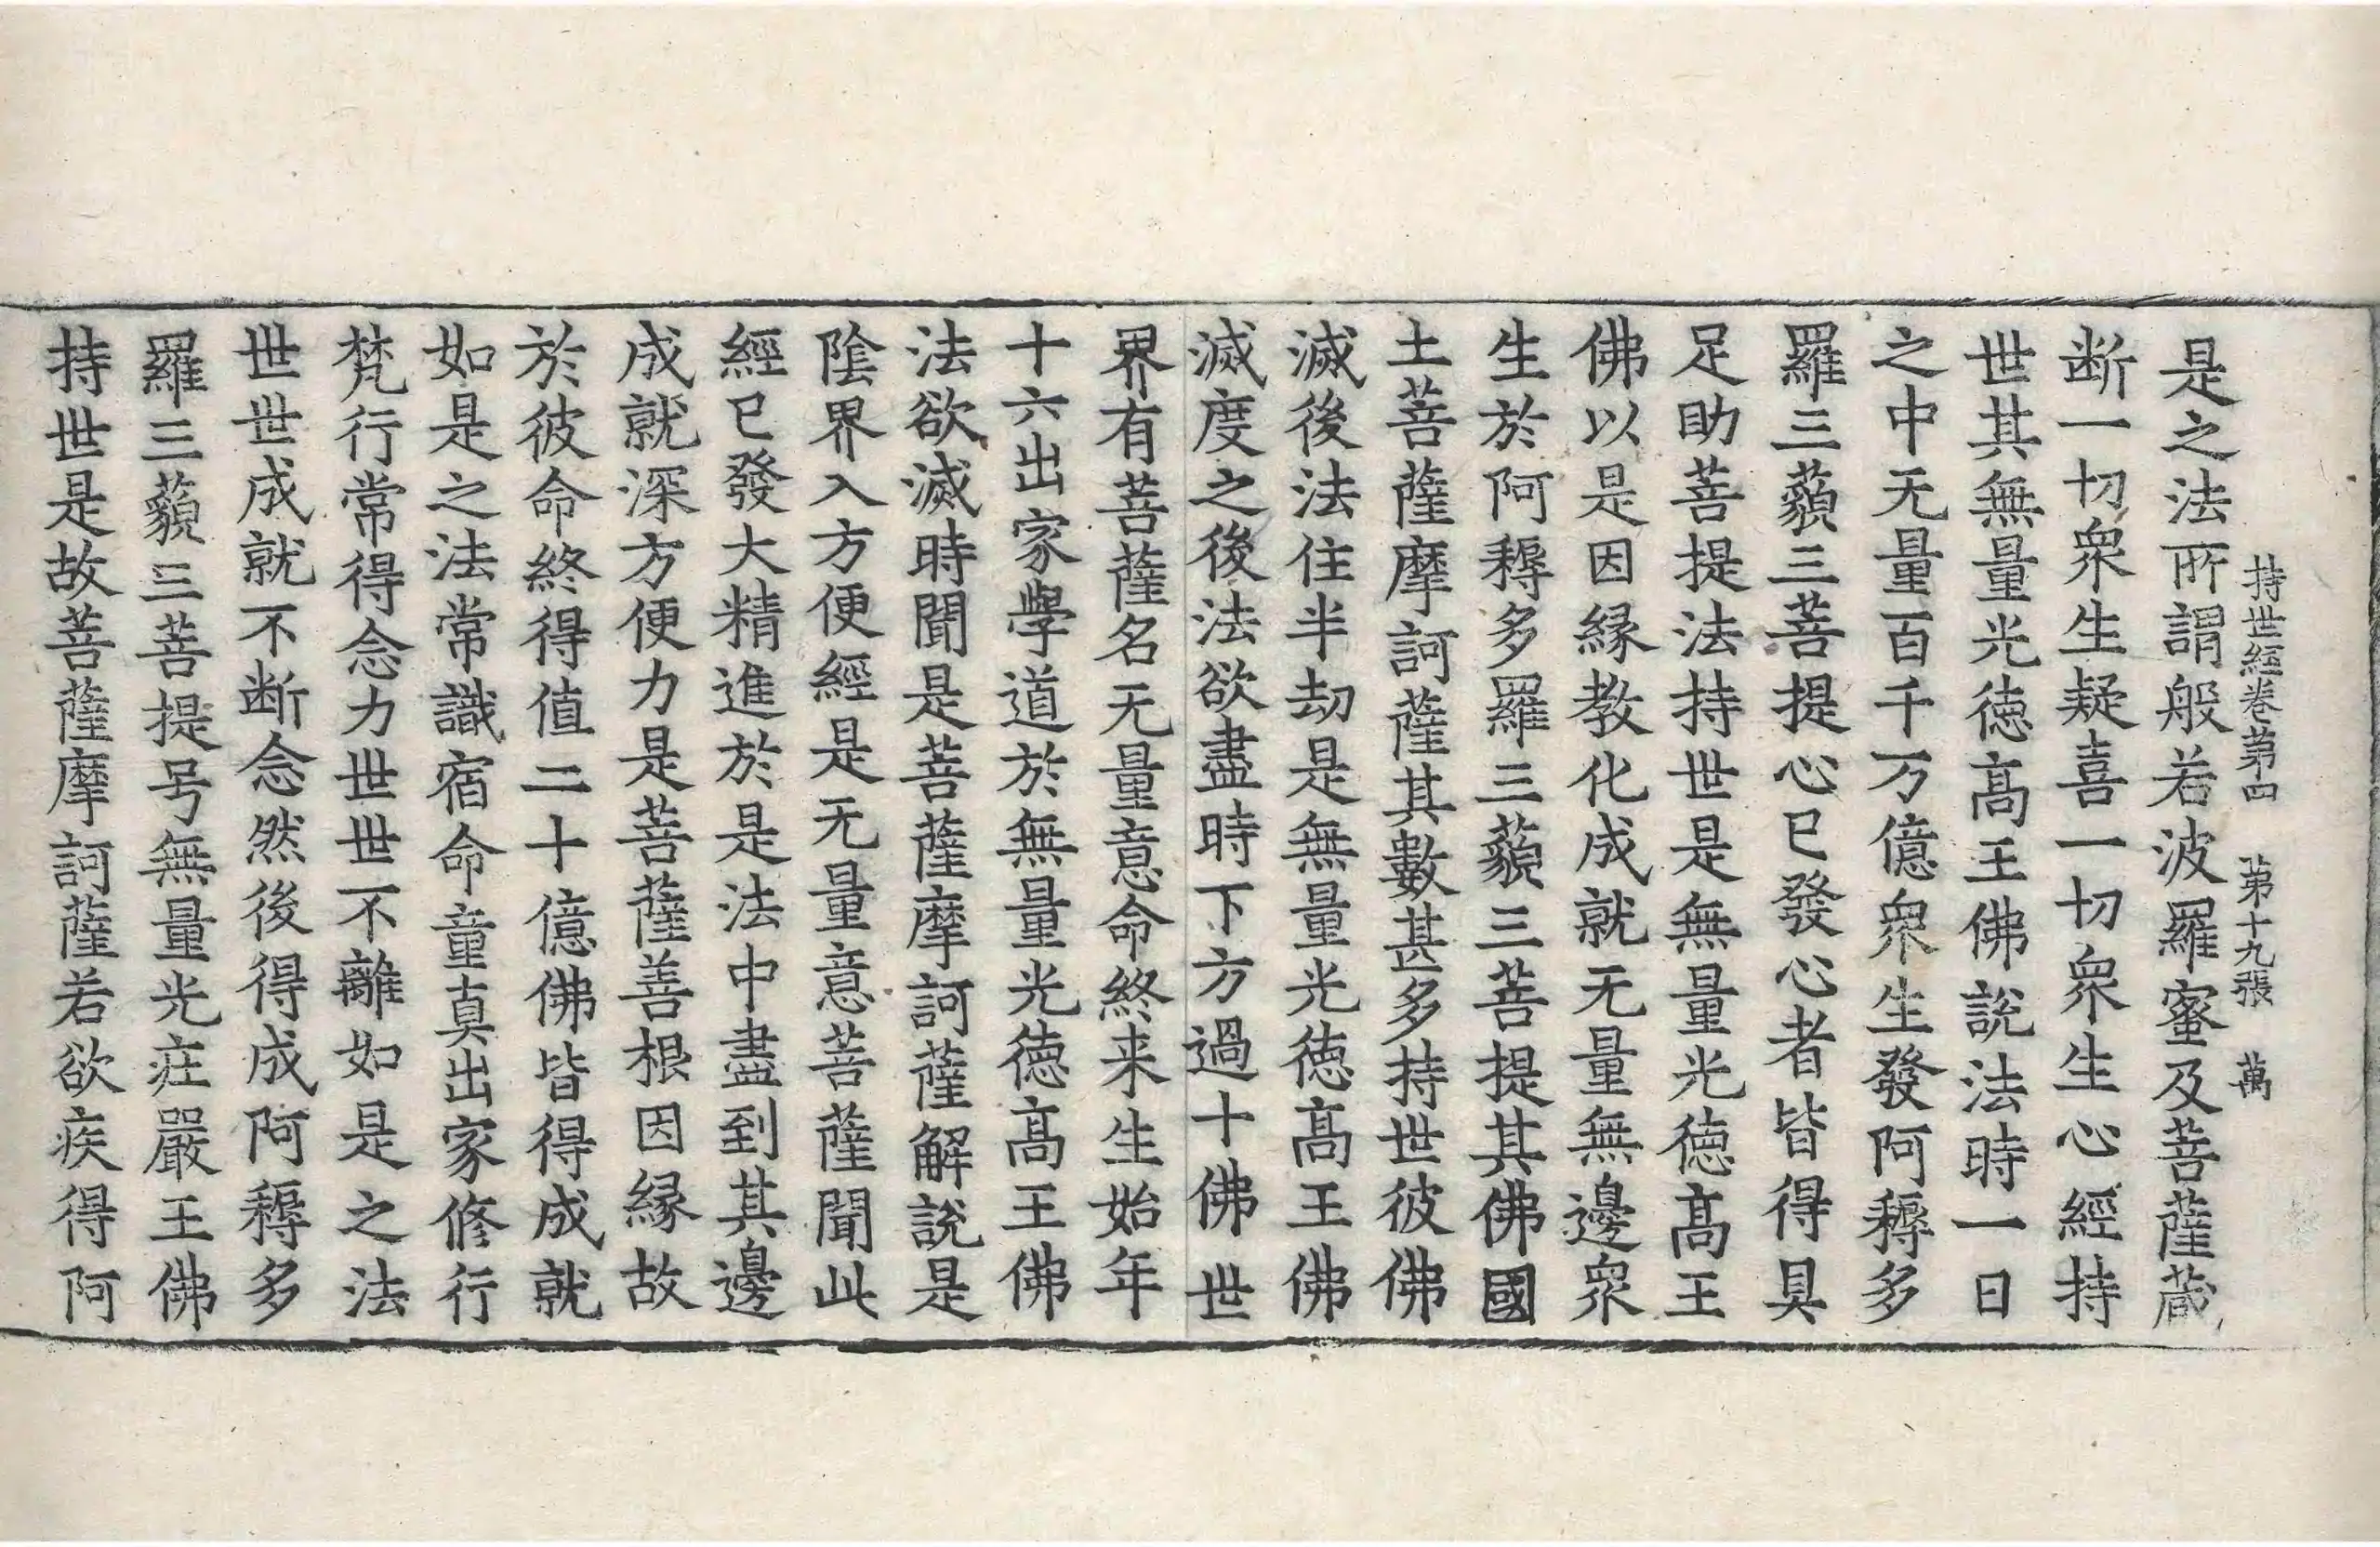 持世經卷第四　第十九張　萬
是之法所謂般若波羅蜜及菩薩蔵
断一切衆生疑喜一切衆生心經持
世其無量光徳髙王佛說法時一日
之中无量百千万億衆生發阿耨多
羅三藐三菩提心已發心者皆得具
足助菩提法持世是無量光徳髙王
佛以是因縁教化成就无量無邊衆
生於阿耨多羅三藐三菩提其佛國
土菩薩摩訶薩其數甚多持世彼佛
滅後法住半劫是無量光徳髙王佛
滅度之後法欲盡時下方過十佛世
界有菩薩名无量意命終来生始年
十六出家學道於無量光徳髙王佛
法欲滅時聞是菩薩摩訶薩解說是
陰界入方便經是无量意菩薩聞此
經已發大精進於是法中盡到其邊
成就深方便力是菩薩善根因縁故
於彼命終得值二十億佛皆得成就
如是之法常識宿命童真出家修行
梵行常得念力世世不離如是之法
世世成就不断念然後得成阿耨多
羅三藐三菩提号無量光庄嚴王佛
持世是故菩薩摩訶薩若欲疾得阿